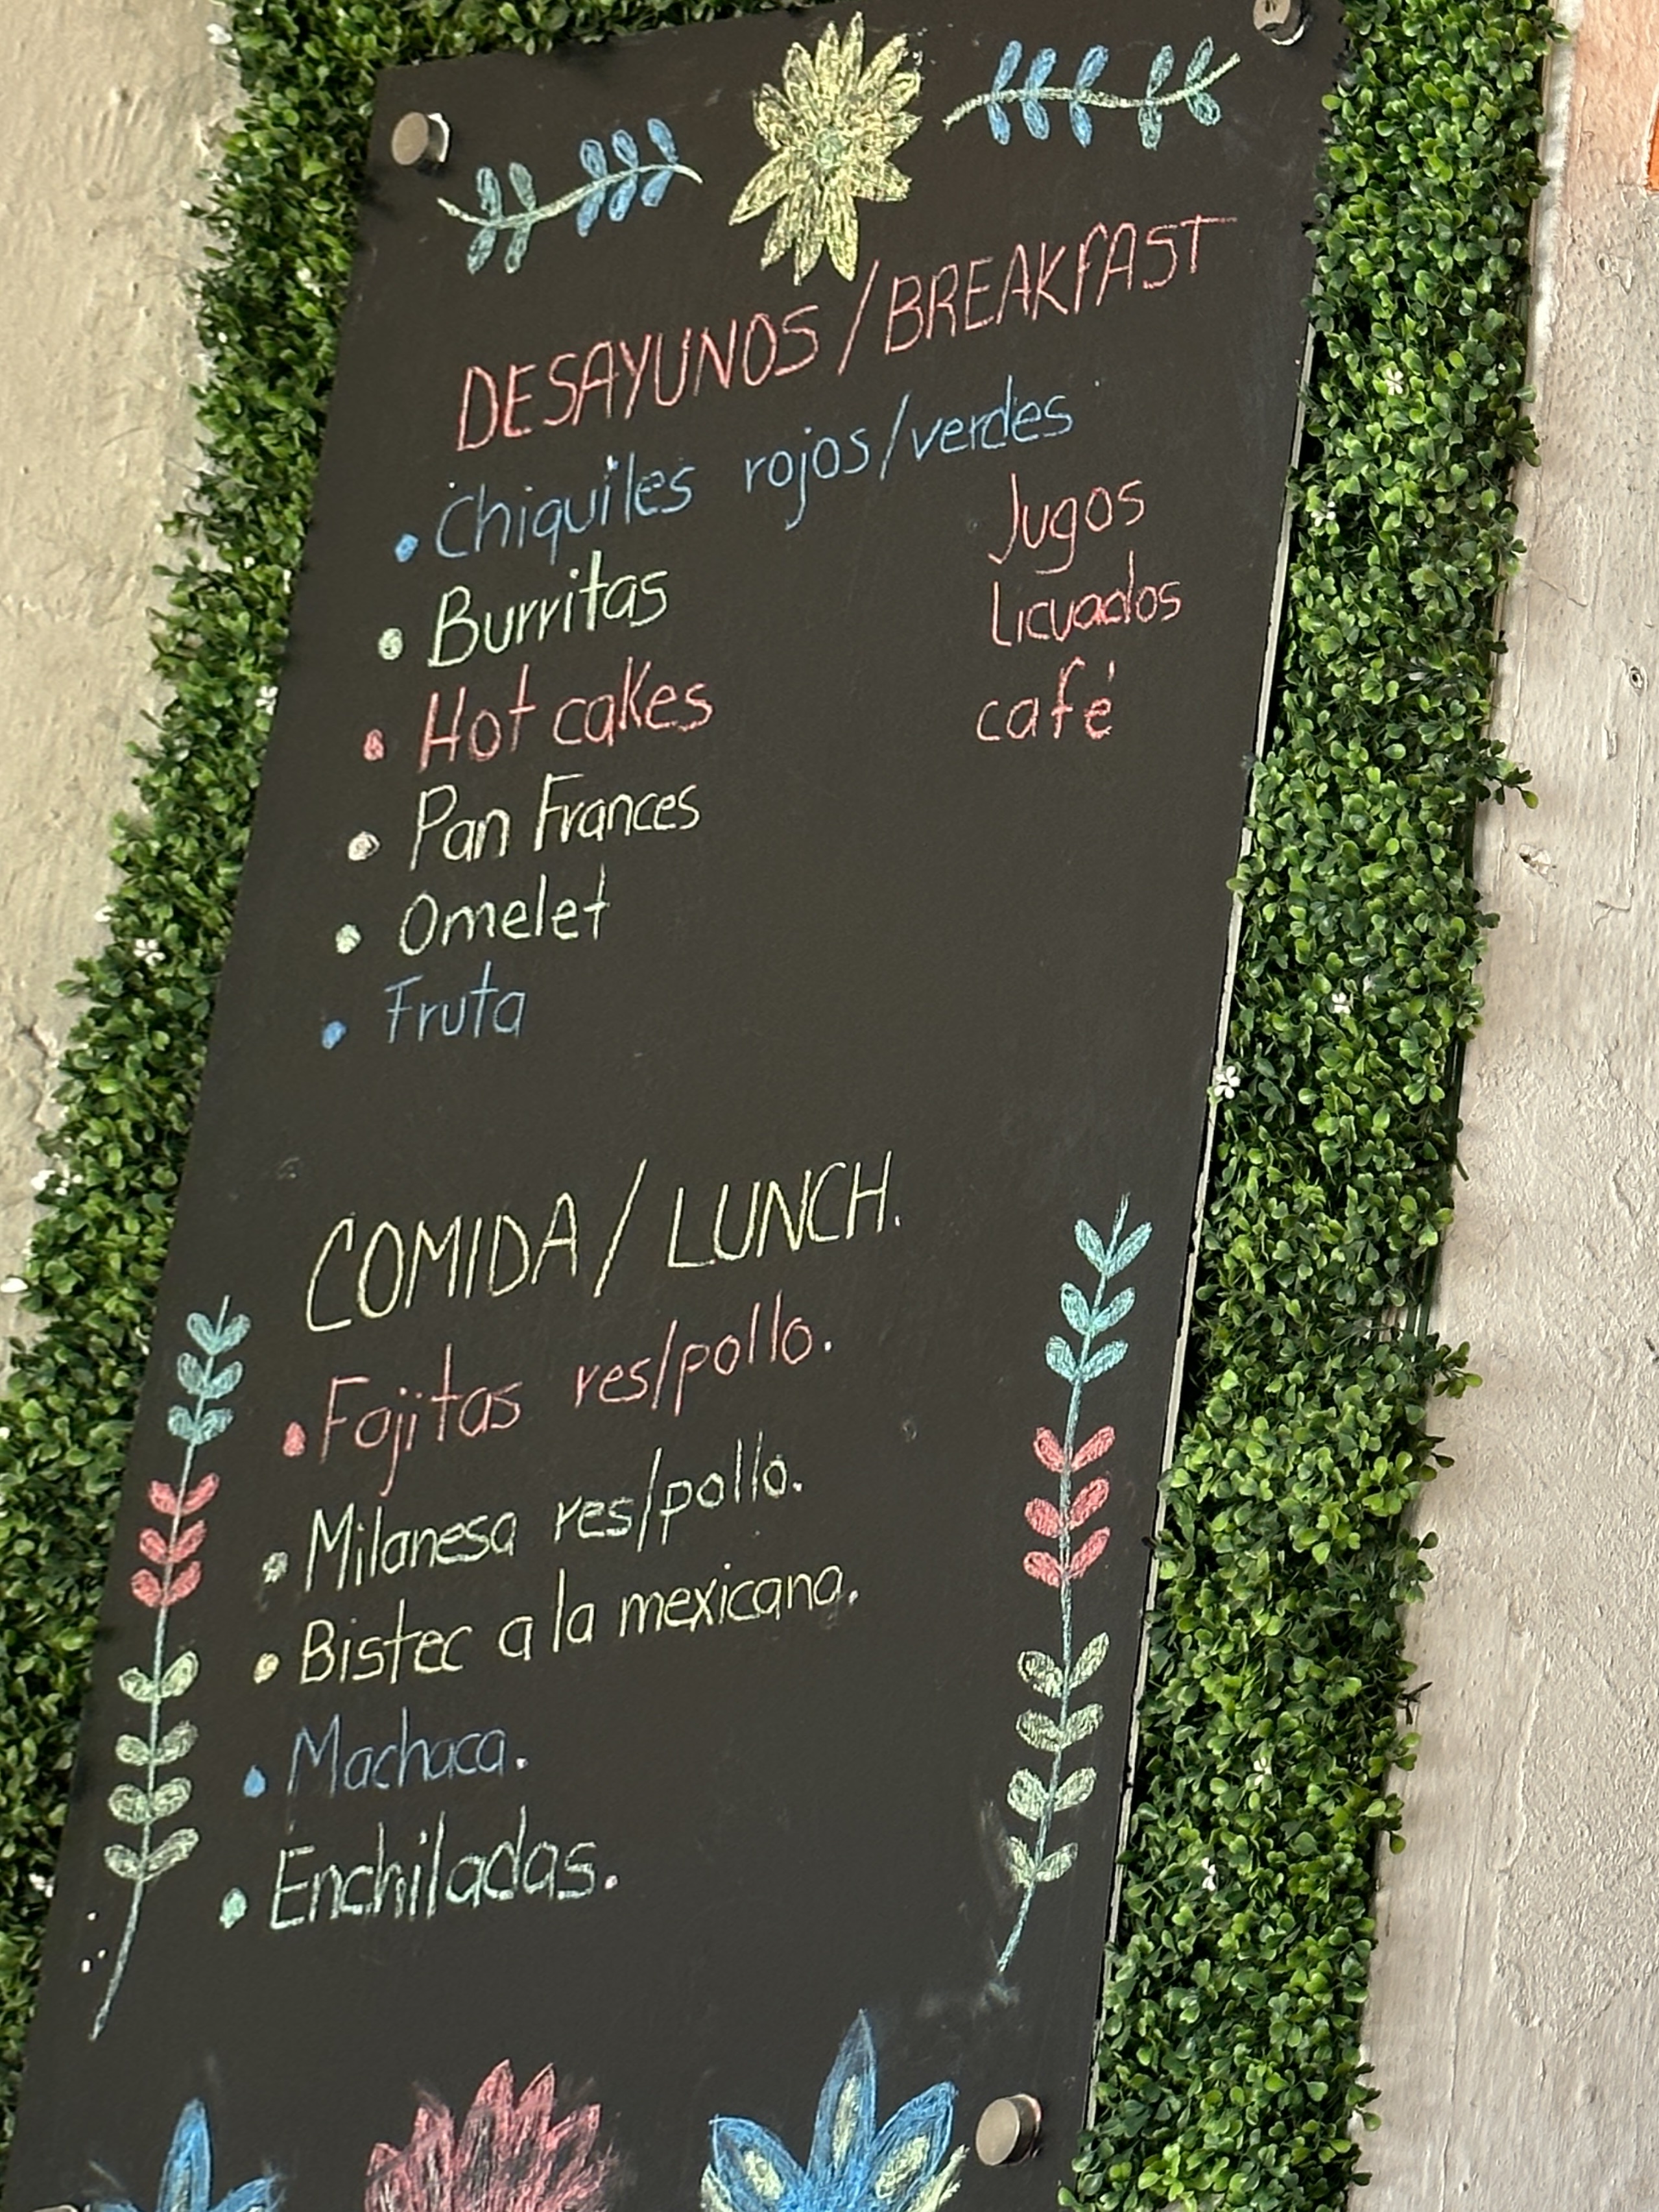 DESAYUNOS/BREAKFAST
• Chiquiles rojos/verdes
• Burritas
• Hot cakes
• Pan Frances
• Omelet
• Fruta
Jugos
Licuados
café
COMIDA/LUNCH.
• Fajitas res/pollo.
• Milanesa res/pollo.
• Bistec a la mexicana.
• Machaca.
• Enchiladas.